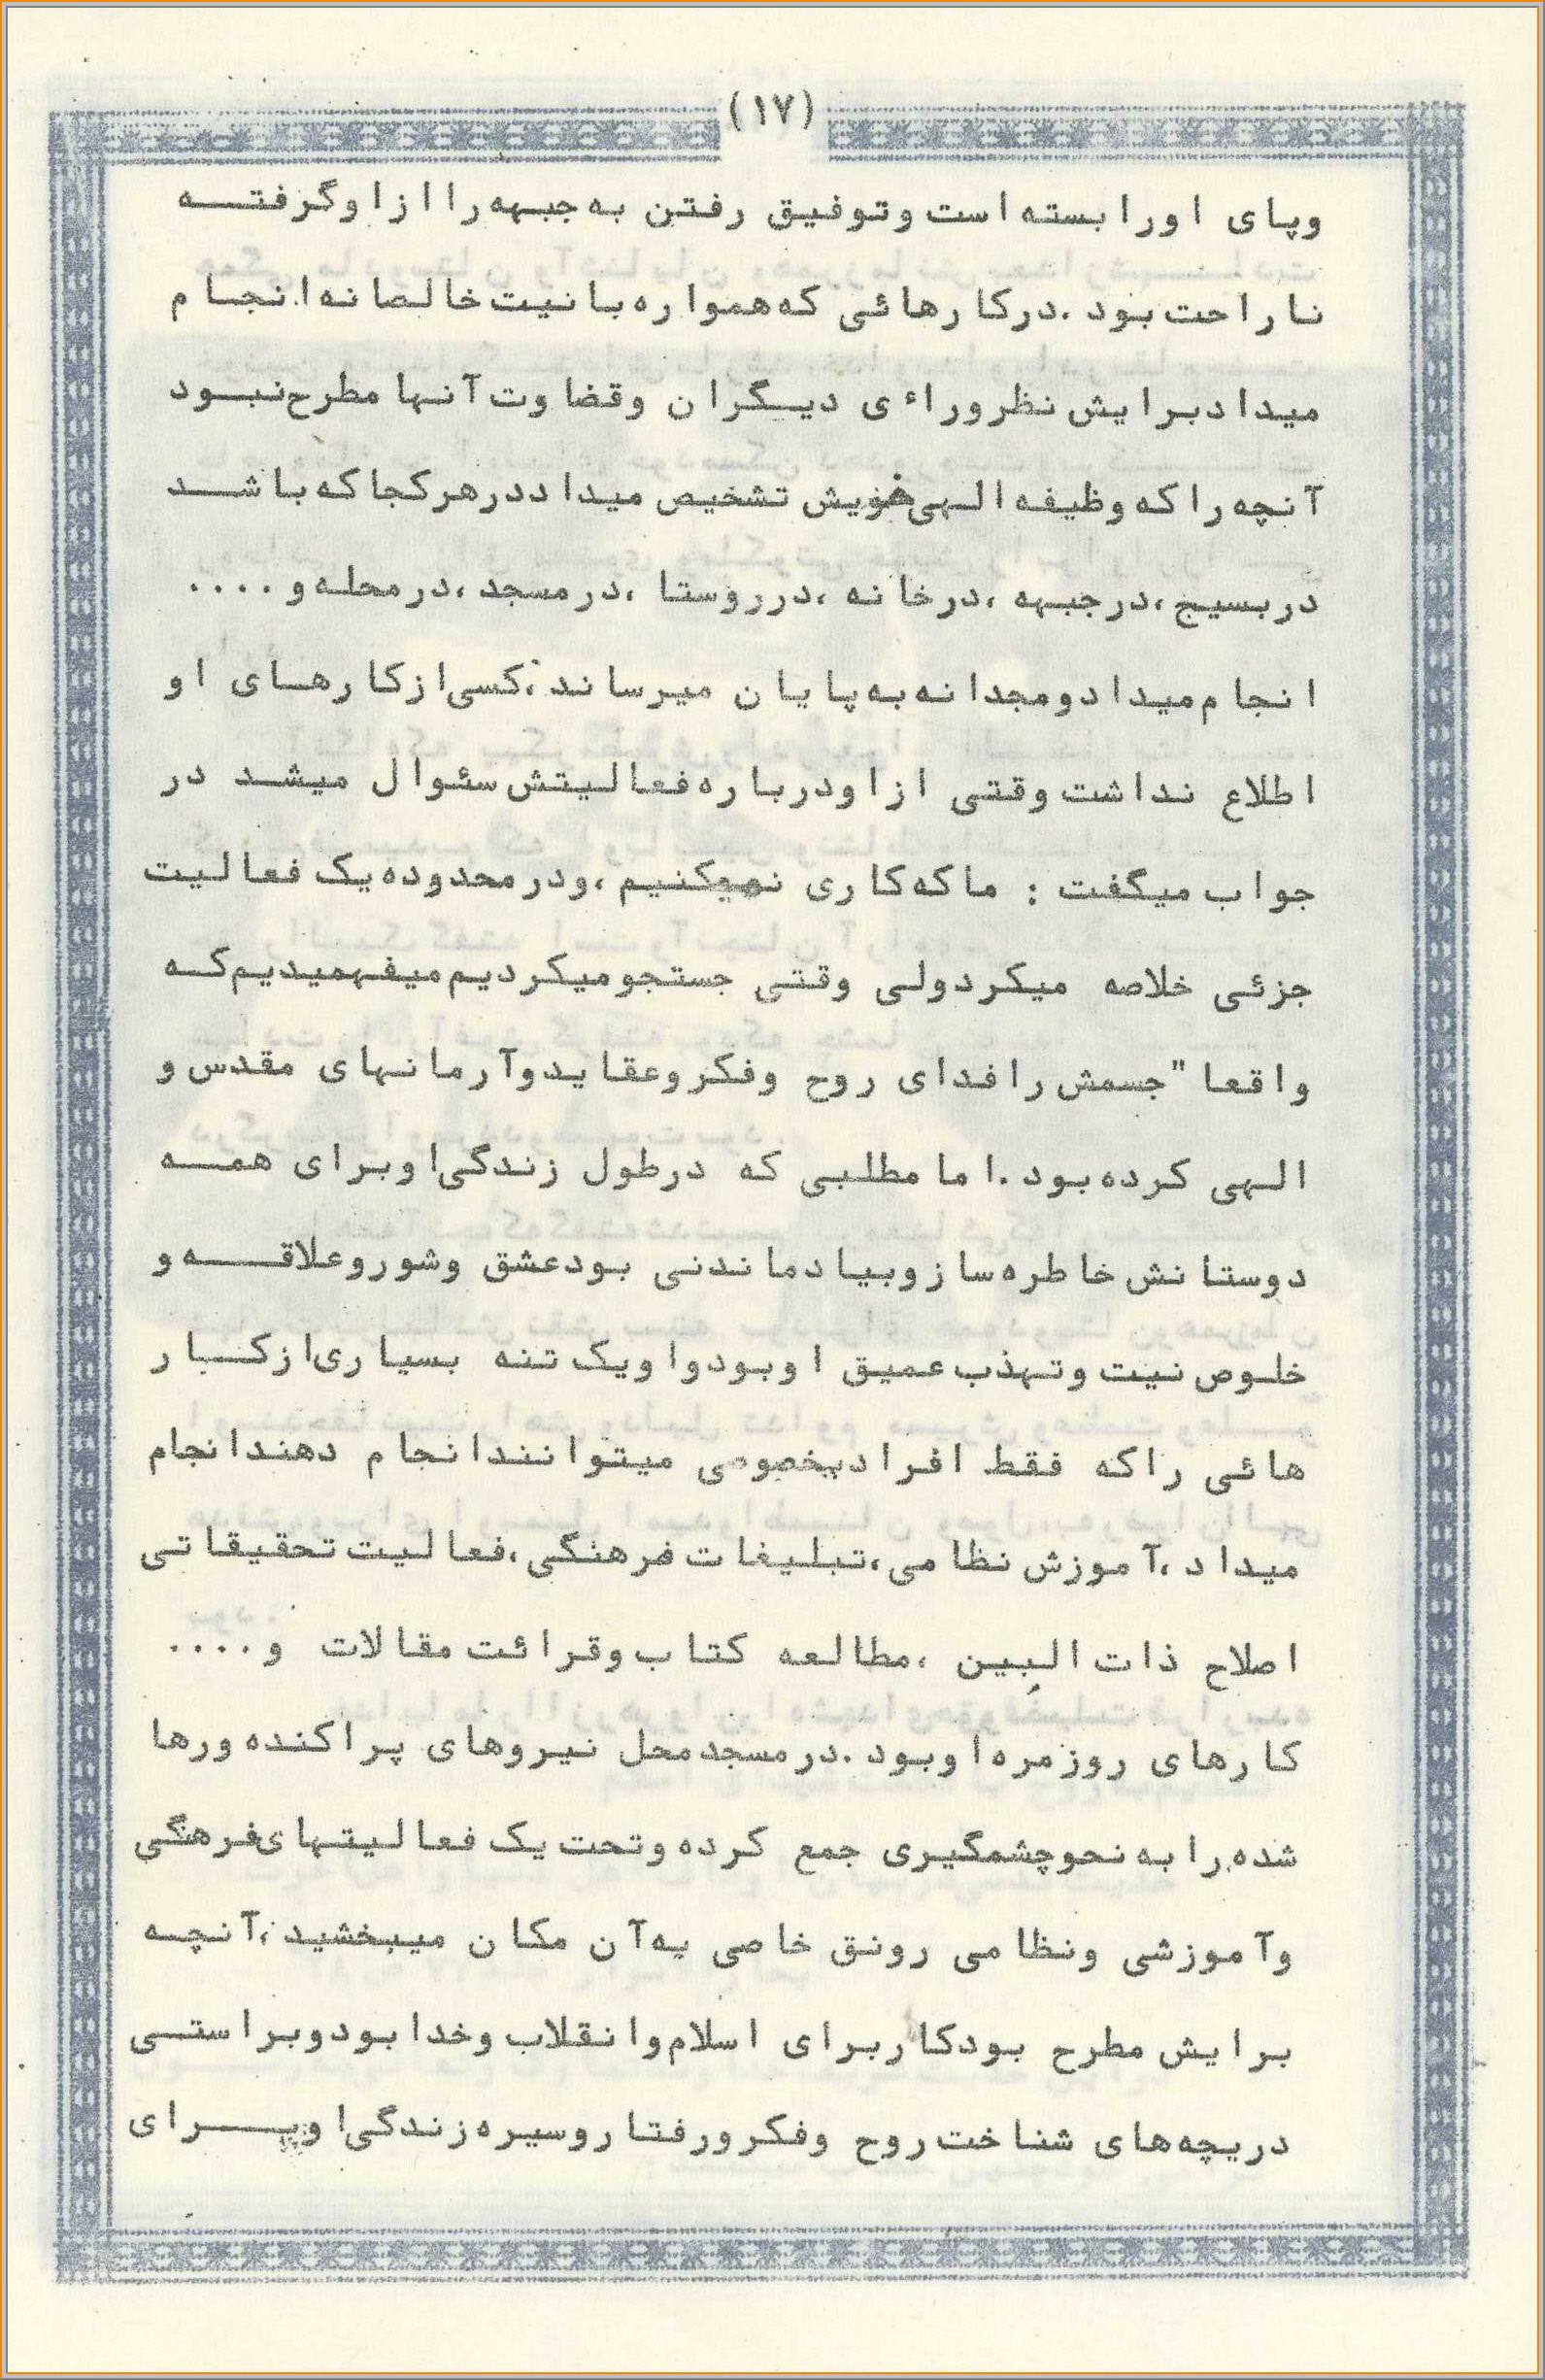 (۱۷)
وپای اورا بسته است وتوفیق رفتن به جبهه را ازاوگرفته
ناراحت بود .درکارهائی که همواره بانیت خالصانه انجام
میدادبرایش نظروراءی دیگران وقضاوت آنها مطرح نبود
آنچه راکه وظیفه الهی خویش تشخیص میداددرهرکجاکه باشد
دربسیج ،درجبهه ،درخانه ،درروستا ،درمسجد ،درمحله و ....
انجام میدادومجدانه به پایان میرساند ،کسی ازکارهای او
اطلاع نداشت وقتی ازاودرباره فعالیتش سئوال میشد در
جواب میگفت : ماکه کاری نمیکنیم ،ودرمحدوده یک فعالیت
جزئی خلاصه میکردولی وقتی جستجومیکردیم میفهمیدیم که
واقعا" جسمش رافدای روح وفکروعقایدوآرمانهای مقدس و
الهی کرده بود .اما مطلبی که درطول زندگی اوبرای همه
دوستانش خاطره سازوبیادماندنی بودعشق وشوروعلاقه و
خلوص نیت وتهذب عمیق اوبودواویک تنه بسیاری ازکار
هائی راکه فقط افرادبخصوصی میتوانندانجام دهندانجام
میداد ،آموزش نظامی ،تبلیغات فرهنگی ،فعالیت تحقیقاتی
اصلاح ذات البین ،مطالعه کتاب وقرائت مقالات و ....
کارهای روزمره اوبود .درمسجدمحل نیروهای پراکنده ورها
شده را به نحوچشمگیری جمع کرده وتحت یک فعالیتهای فرهنگی
وآموزشی ونظامی رونق خاصی به آن مکان میبخشید ،آنچه
برایش مطرح بودکاربرای اسلام وانقلاب وخدا بودوبراستی
دریچه های شناخت روح وفکرورفتاروسیره زندگی اوبرای